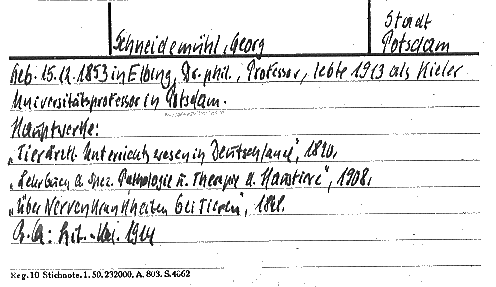 Stadt
Schneidemühl, Georg Potsdam
Geb. 15.12.1853 in Elbing, Dr. phil., Professor, lebte 1913 als Kieler
Universitätsprofessor in Potsdam.
Hauptwerke:
„Tierärztl. Unterrichtswesen in Deutschland", 1890,
„Lehrbuch d. spez. Pathologie u. Therapie d. Haustiere", 1908,
„Über Nervenkrankheiten bei Tieren",
1914
Reg. 10 Stichnote. 1. 50. 232000. A. 803. S. 4662